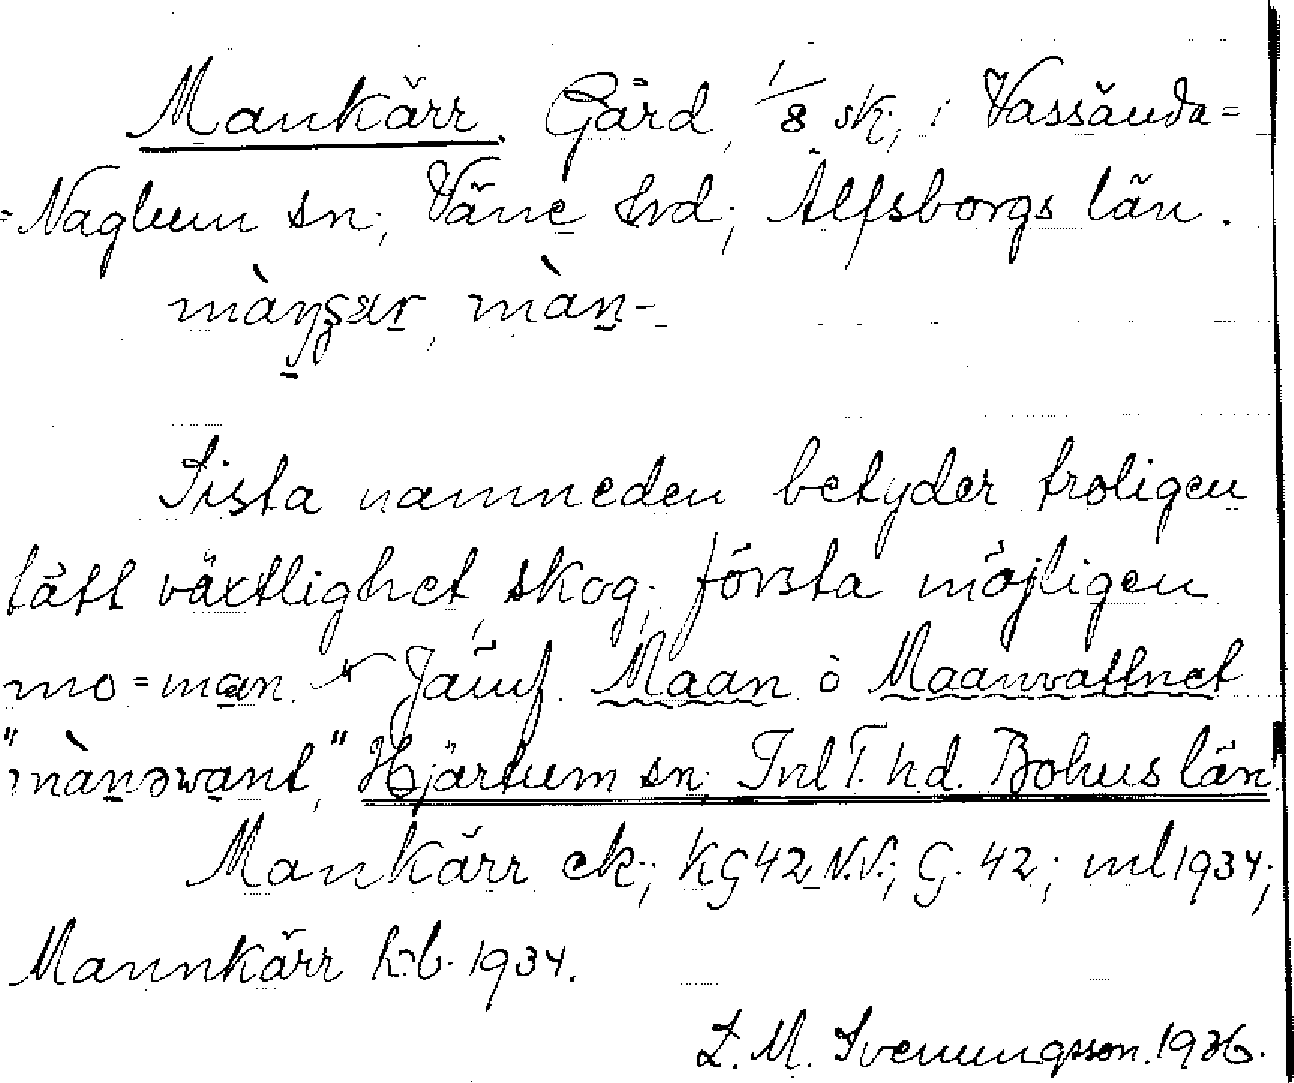 Mankärr. Gård, 1/8 sk, i Vassända=
=Naglum sn; Väne hrd; Älfsborgs län.
màn-
Sista namneden betyder troligen
tätt växtlighet, skog; första möjligen
mo=man. Jämf. Maan o Maanvattnet
"mànəwant," Hjärtum sn; Inl T. hd. Bohus län!
Mankärr ek; KG42 N.V.; G. 42; ml 1934;
Mannkärr hb. 1934.
L. M. Svenungsson. 1936.